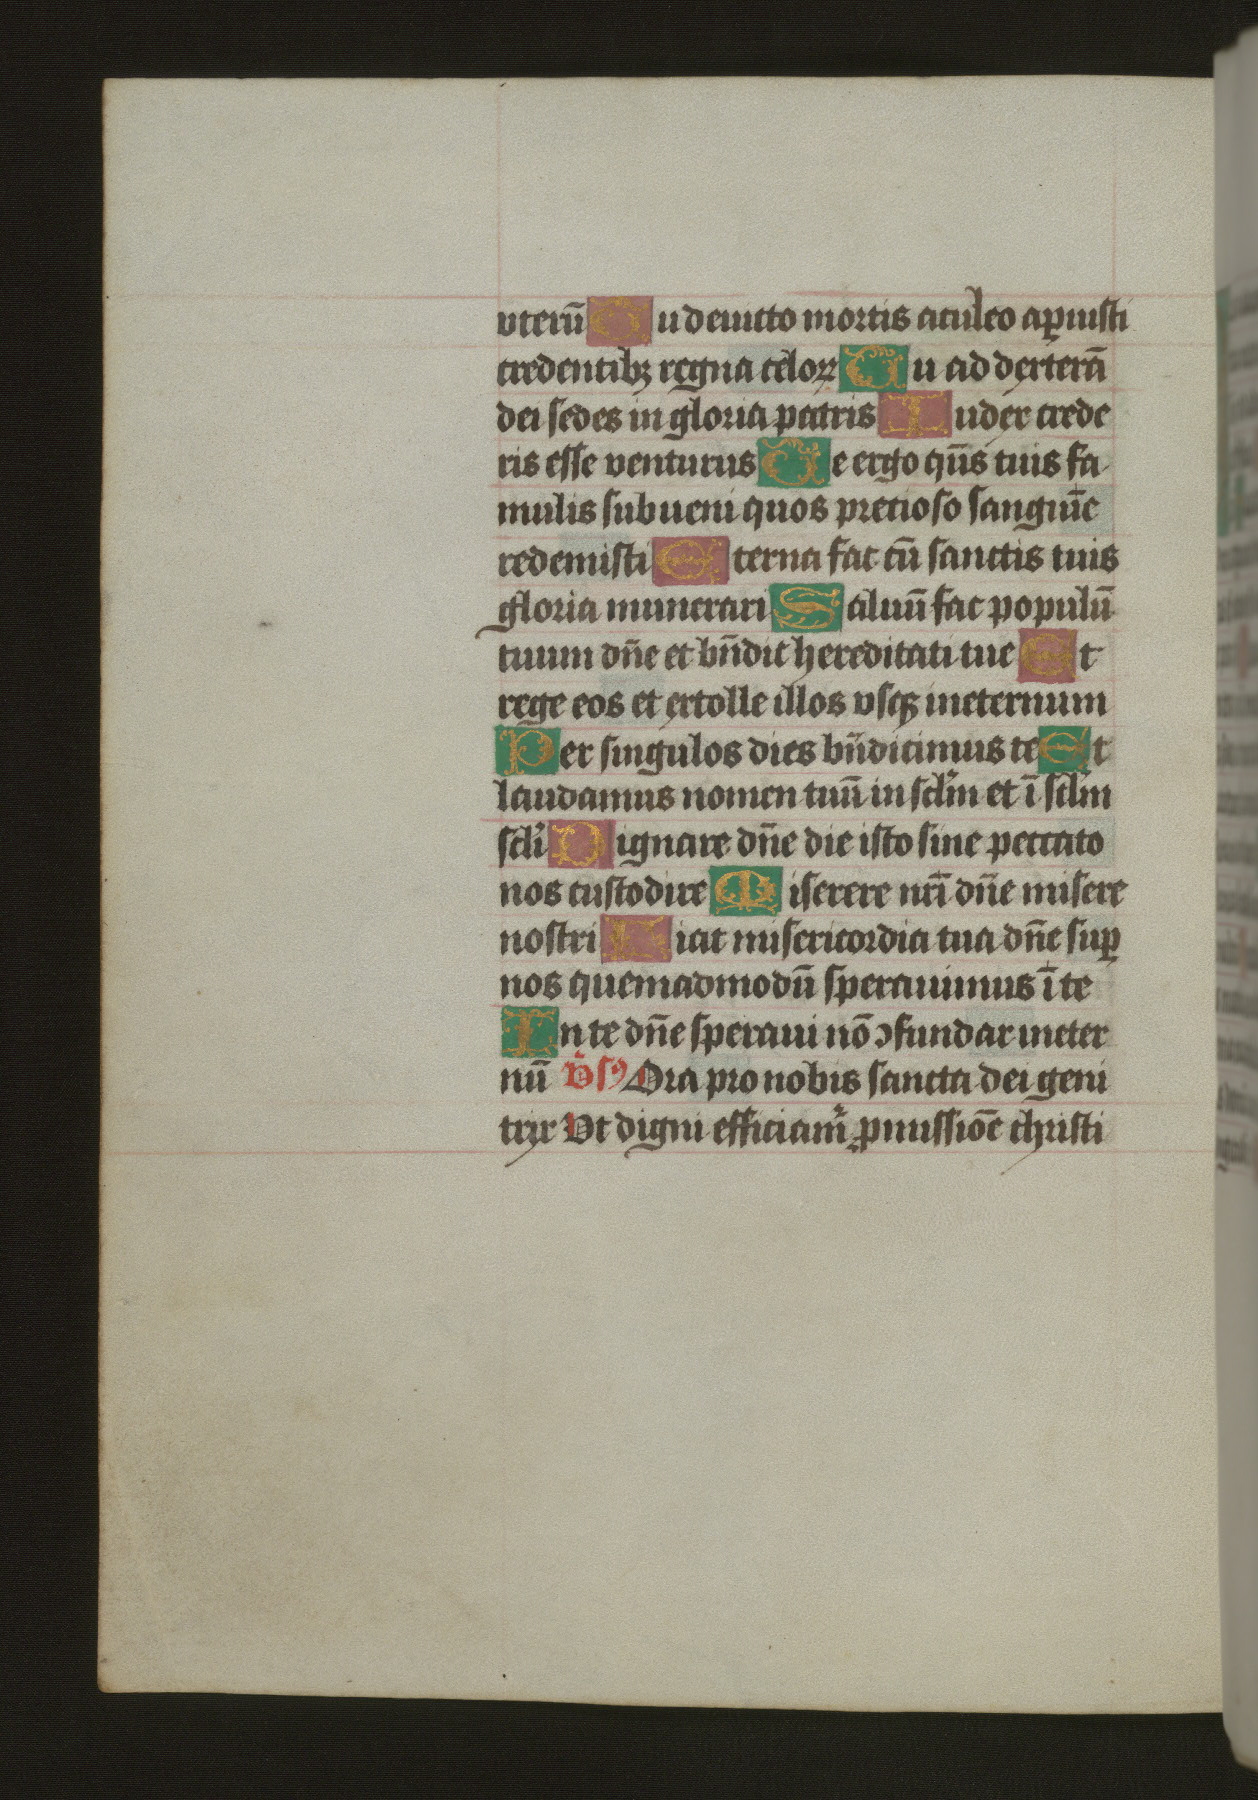 vterū Tu deuicto mortis aculeo aꝑuisti
credentibꝫ regna celoꝝ Tu ad dexterā
dei sedes in gloria patris Iudex crede
ris esse venturus Te ergo qūs tuis fa
mulis subueni quos precioso sanguīe
redemisti Eterna fac cū sanctis tuis
gloria munerari Saluū fac populū
tuum dn̄e et bn̄dic hereditati tue Et
rege eos et extolle illos vsqꝫ ineternum
Per singulos dies bn̄dicimus te Et
laudamus nomen tuū in sclm̄ et ī sclm̄
scli Dignare dn̄e die isto sine peccato
nos custodire Miserere nr̄i dn̄e misere
nostri Fiat misericordia tua dn̄e suꝑ
nos quemadmodū sperauimus ī te
In te dn̄e speraui nō ↄfundar ineter
nū v̉sꝰ Ora pro nobis sancta dei geni
trix Vt digni efficiam̉ ꝓmissiōe christi